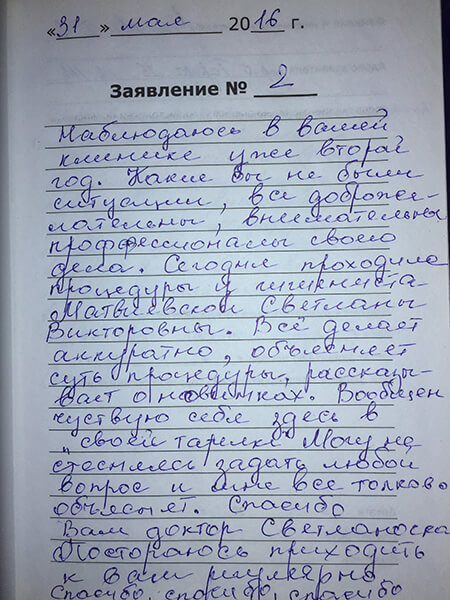 «31» мая 2016 г.
Заявление № 2
Наблюдаюсь в вашей
клинике уже второй
год. Какие бы не были
ситуации, все доброже-
лательны, внимательны
профессионалы своего
дела. Сегодня проходила
процедуры у гигиениста
Матвиевской Светланы
Викторовны. Всё делает
аккуратно, объесняет
суть процедуры, рассказы-
вает о новинках. Вообщем
чуствую себя здесь в
"своей тарелке" Могу не
стесняясь задать любой
вопрос и мне все толково
объеснят. Спасибо
Вам доктор Светланочка
Постораюсь приходить
к Вам регулярно
Спасибо, спасибо, спасибо